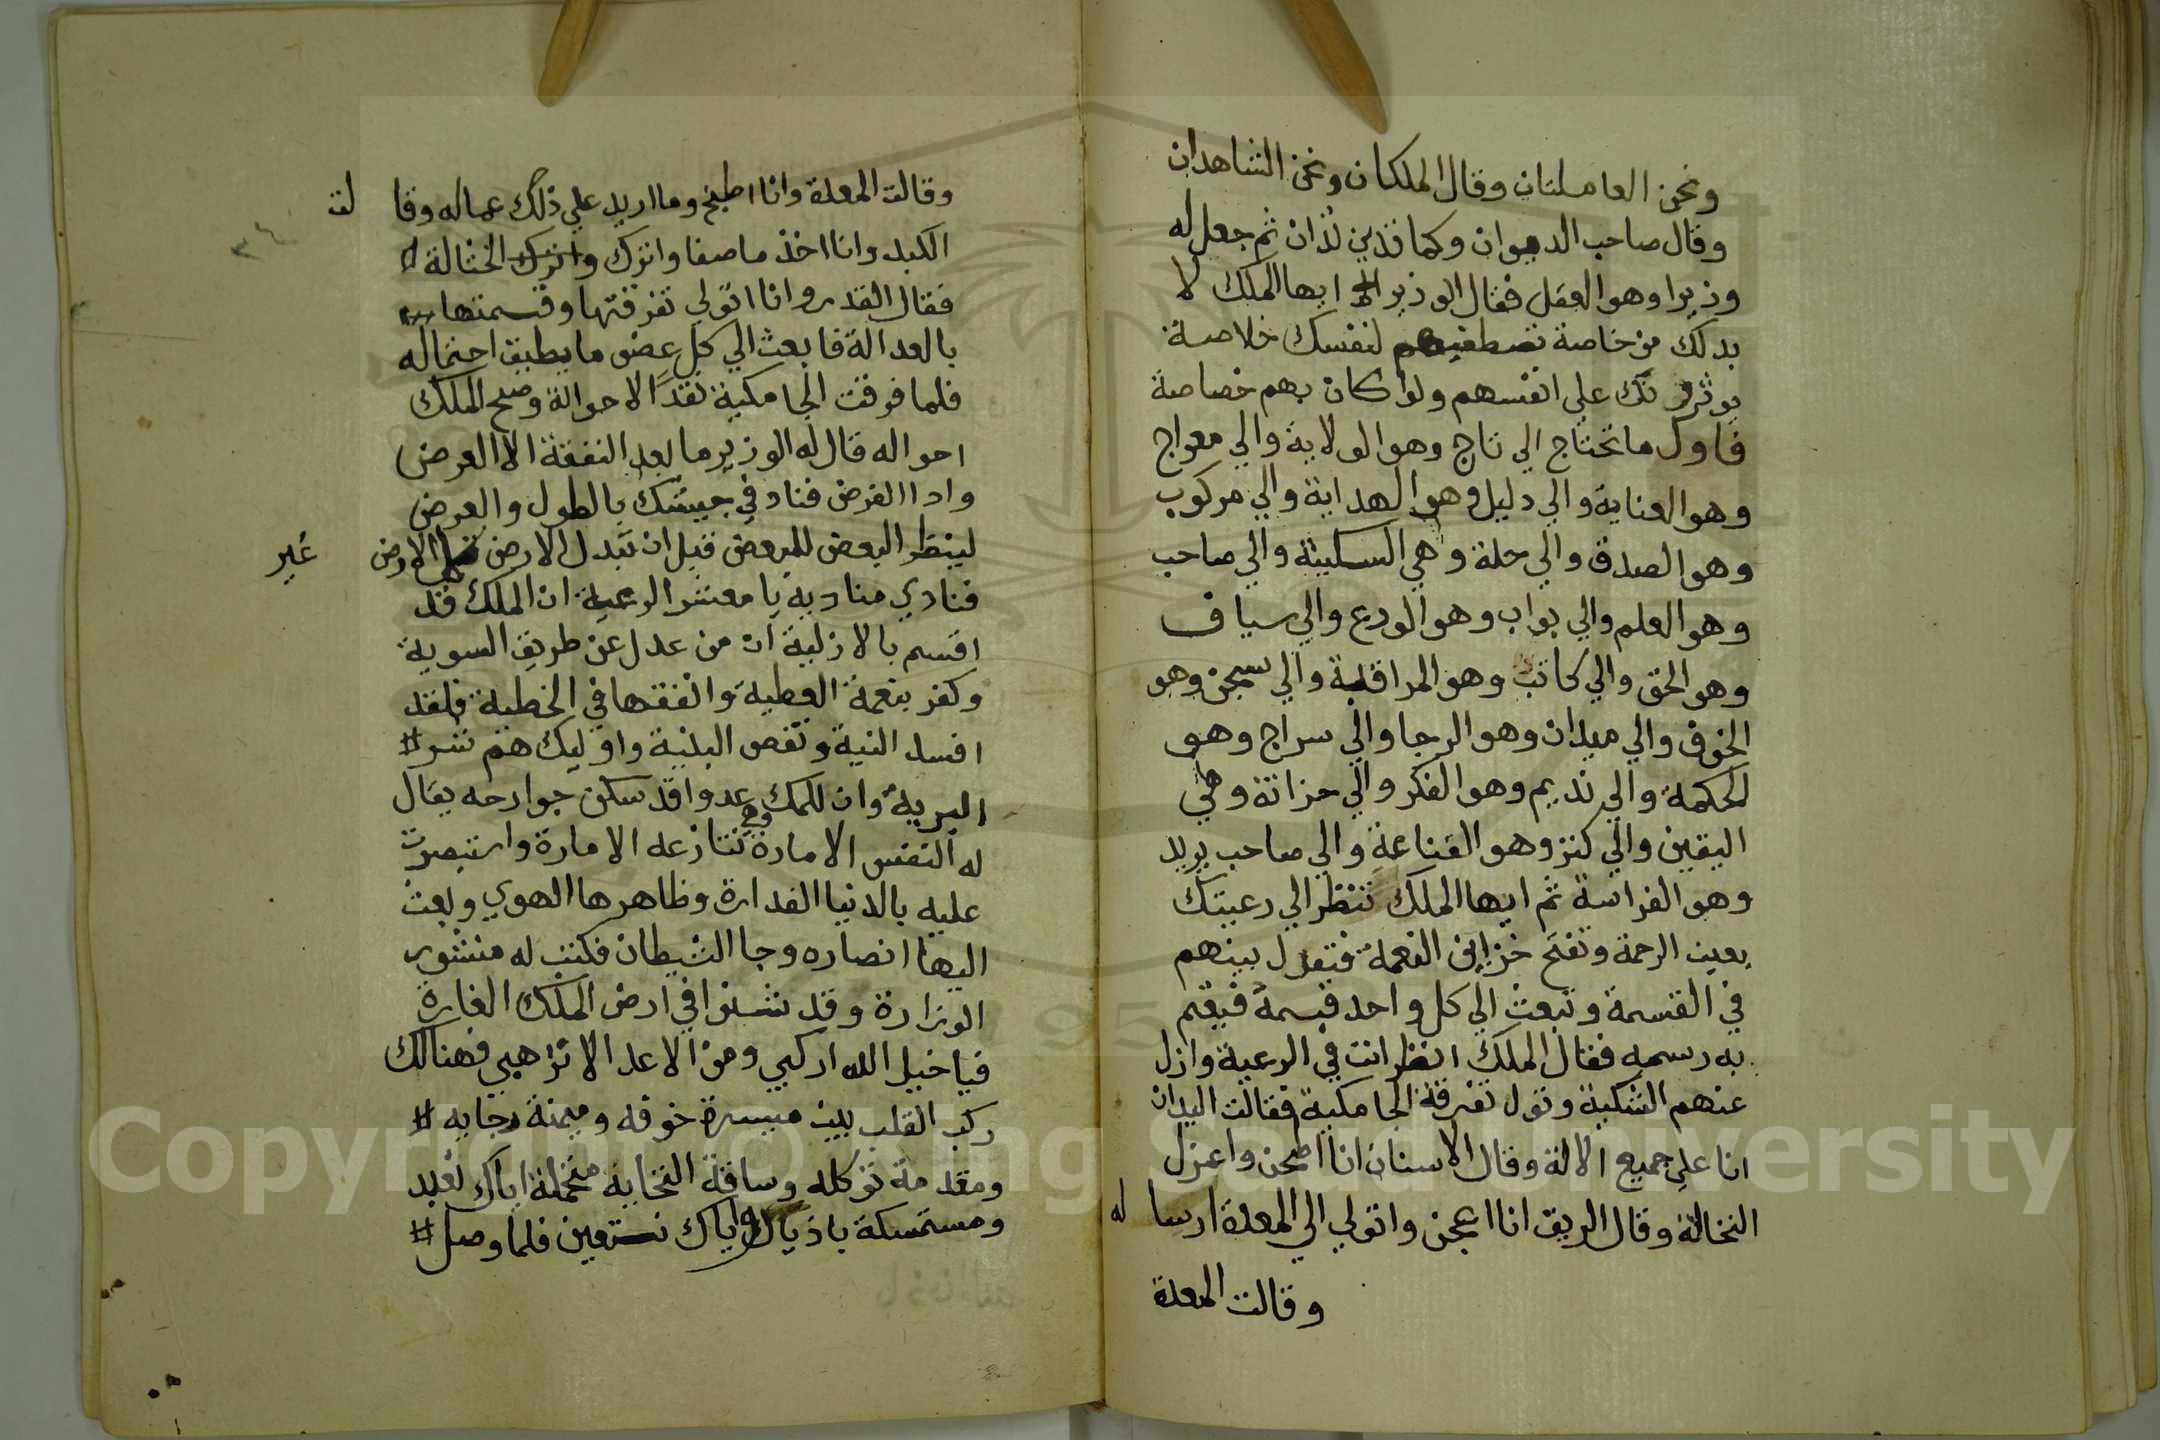 ونحن العاملتان وقال الملكان ونحن الشاهدان
وقال صاحب الديوان وكما تدين تدان ثم جعل له
وزيرا وهو العقل فقال الوزير ايها الملك لا
بدلك من خاصة تصطفيهم لنفسك خلاصة
يوثرونك علي انفسهم ولو كان بهم خصاصة
فاول ما تحتاج الي تاج وهو الولاية والي معراج
وهو العناية والي دليل وهو الهداية والي مركوب
وهو الصدق والي حلة وهي السكينة والي صاحب
وهو العلم والي بواب وهو الورع والي سياف
وهو الحق والي كاتب وهو المراقبة والي سجن وهو
الخوف والي ميدان وهو الرجا والي سراج وهو
الحكمة والي نديم وهو الفكر والي خزانة وهي
اليقين والي كنز وهو القناعة والي صاحب بريد
وهو الفراسة ثم ايها الملك تنظر الي رعيتك
بعين الرحمة وتفتح خزاين النعمة فتعدل بينهم
في القسمة وتبعث الي كل واحد قسمة فيقم
به رسمه فقال الملك انظر انت في الرعية وازل
عنهم الشكية وتول تفرقة الجامكية فقالت اليدان
انا علي جميع الالة وقال الاسنان انا اطحن واعزل
النخالة وقال الريق انا اعجن واتولي الي المعدة ارساله
وقالت المعدة
وقالت المعدة وانا اطبخ وما اريد علي ذلك عماله وقالت
الكبد وانا اخذ ما صفا واترك واترك الحثالة
فقال القدر وانا اتولي تفرقتها وقسمتها
بالعدالة فابعث الي كل عضو ما يطيق احتماله
فلما فرقت الجامكية نقدا لا حوالة وصح الملك
احواله قال له الوزير ما بعد النفقة الا العرض
وادا الفرض فناد في جيشك بالطول والعرض
لينظر البعض للبعض قبل ان تبدل الارض غير الارض
فنادي مناديه يا معشر الرعية ان الملك قد
اقسم بالازلية ان من عدل عن طريق السوية
وكفر بنعمة العطية وانفقها في الخطية فلقد
افسد النية ونقص البنية واوليك هم شر
البرية وان للملك عدوا قد سكن جوارحه يقال
له النفس الامارة وهي تنازعه الامارة واستبصرت
عليه بالدنيا الغدارة وظاهرها الهوي وبعث
اليها انصاره وجا الشيطان فكتب له منشور
الوزارة وقد شنوا في ارض الملك الغارة
فيا خيل الله اركبي ومن الاعدا لا ترهبي فهنالك
ركب القلب بين ميسرة خوفه وميمنة رجايه
ومقدمة توكله وساقة التجايه متحملة اياك نعبد
ومستمسكة باذيال واياك نستعين فلما وصل